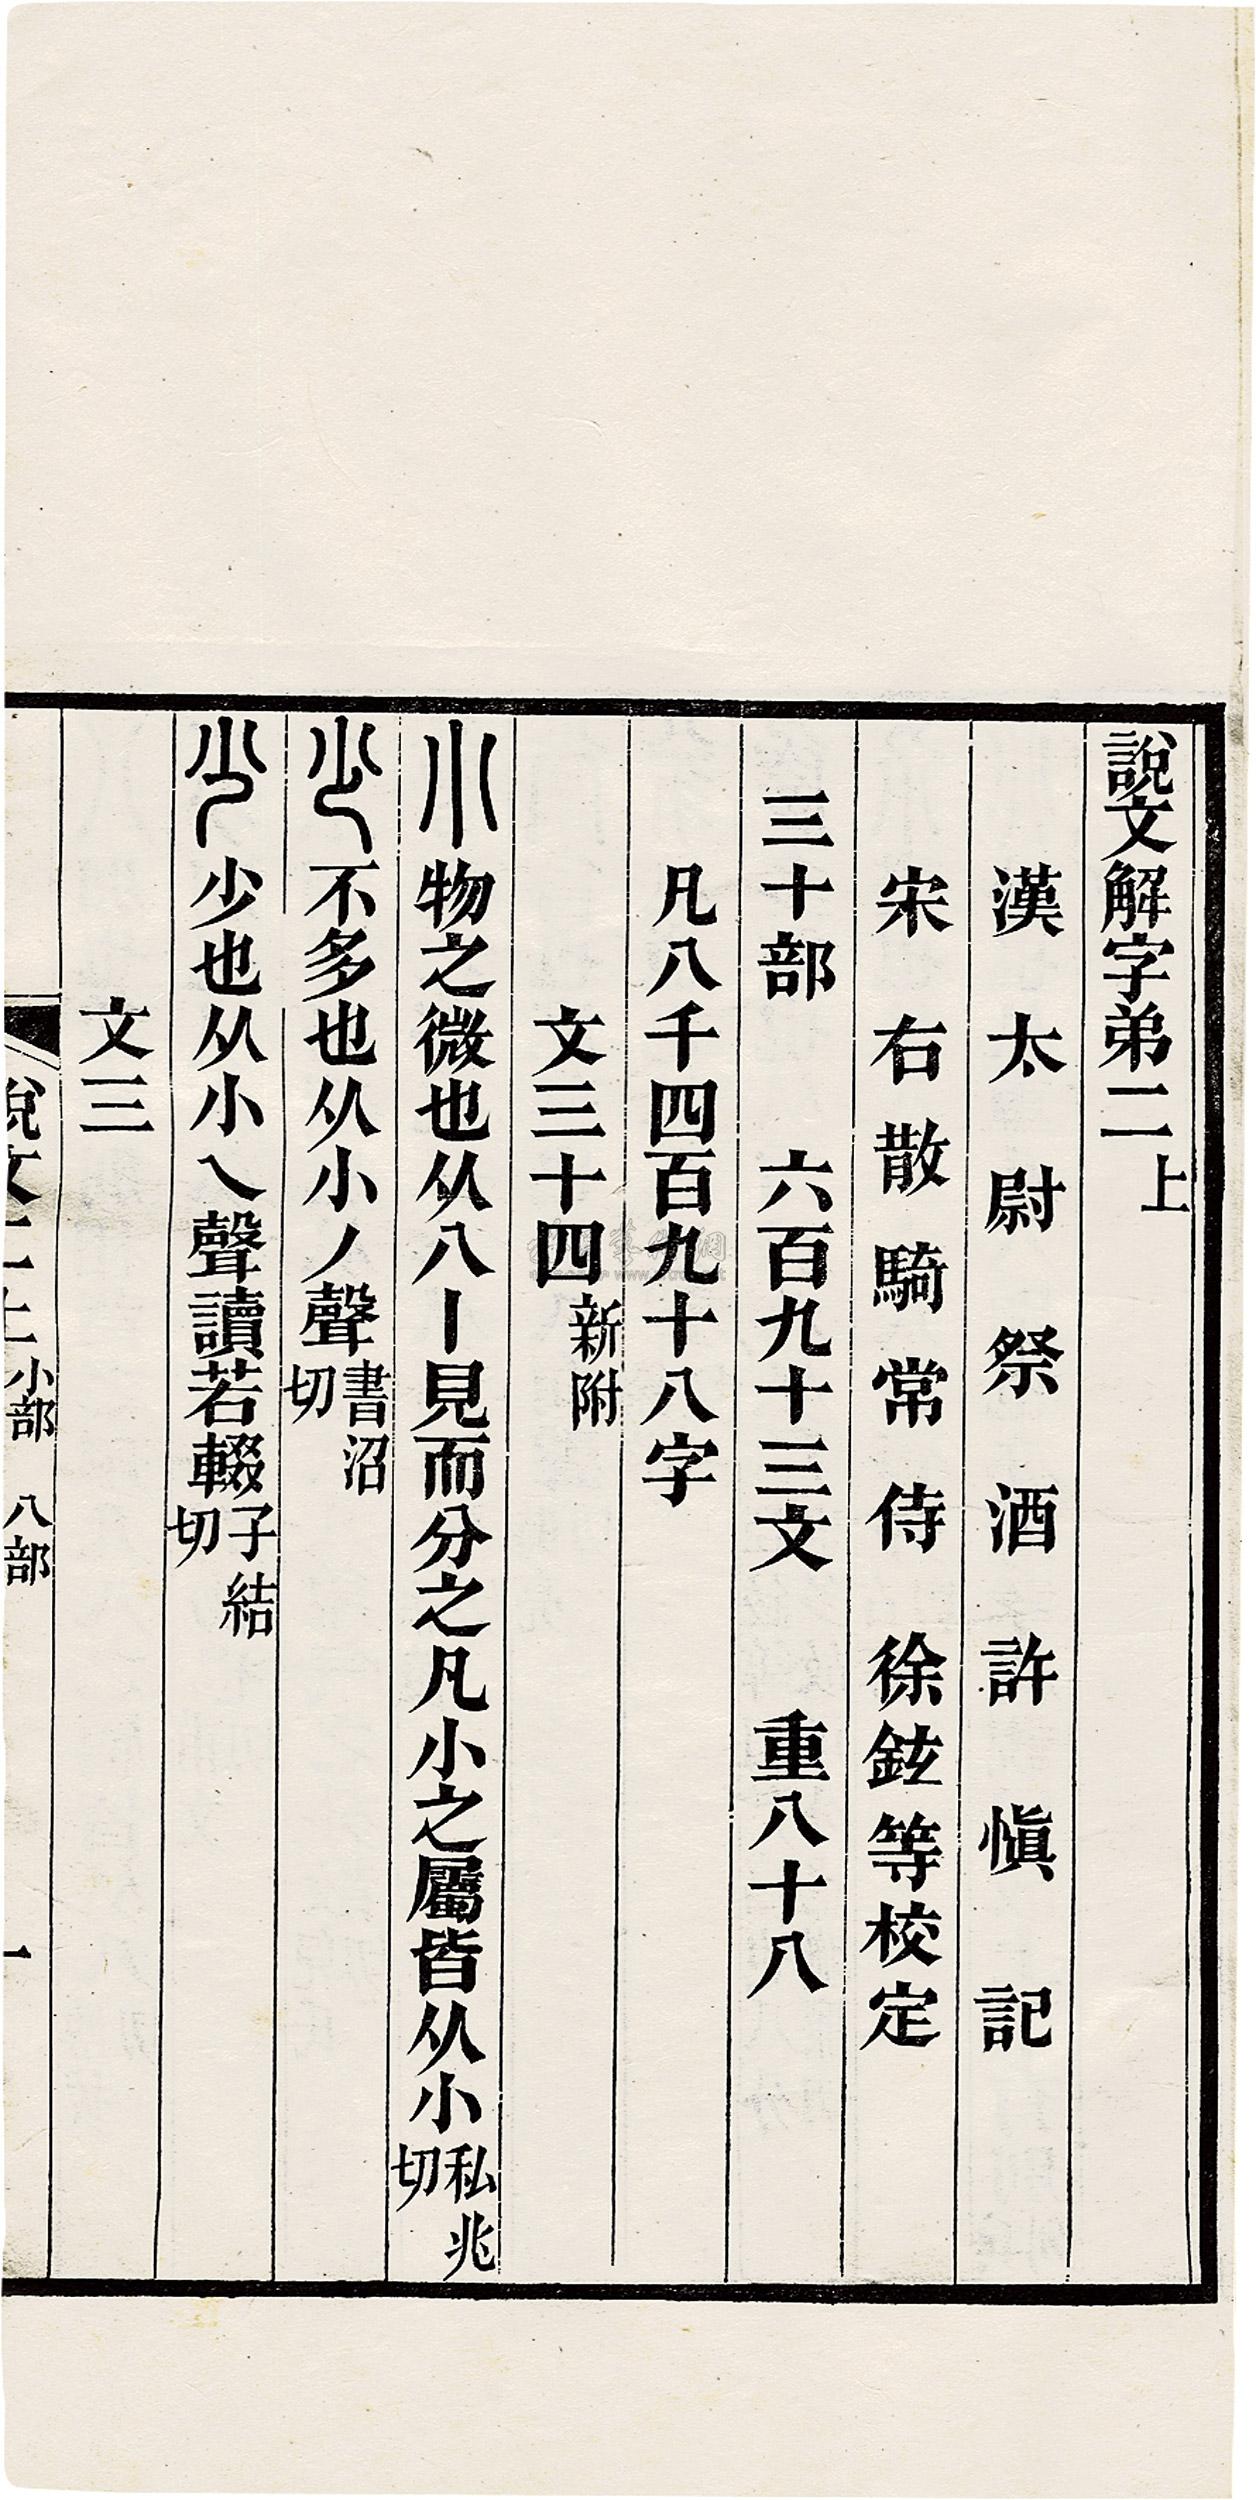 說文解字弟二上
漢太尉祭酒許慎記
宋右散騎常侍徐鉉等校定
三十部 六百九十三文 重八十八
凡八千四百九十八字
文三十四新附
小 物之微也从八丨見而分之凡小之屬皆从小私兆切
少 不多也从小丿聲書沼切
𡭔 少也从小乀聲讀若輟子結切
文三
說文二上 小部 八部 一